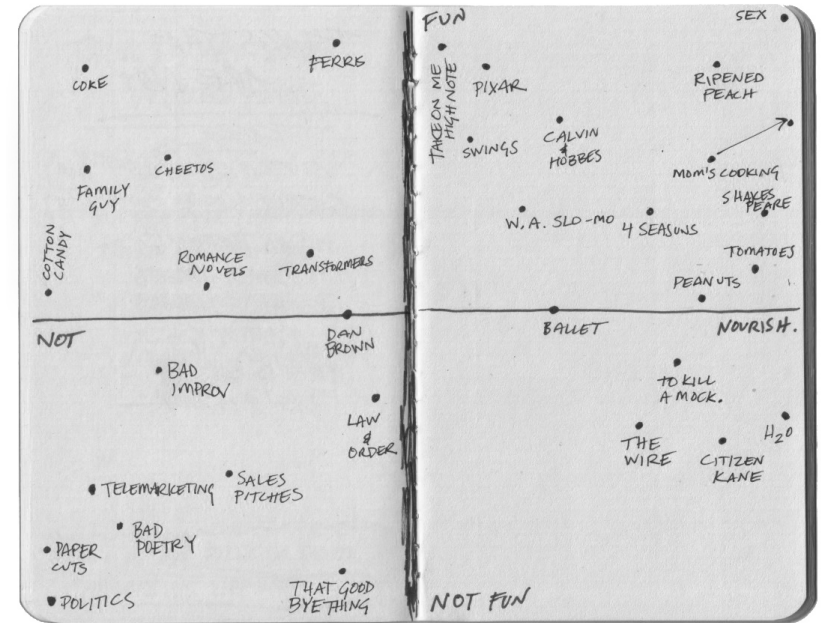 FERRIS
COKE
CHEETOS
FAMILY
GUY
COTTON
CANDY
ROMANCE
NOVELS
TRANSFORMERS
NOT
DAN
BROWN
BAD
IMPROV
LAW
&
ORDER
TELEMARKETING
SALES
PITCHES
BAD
POETRY
PAPER
CUTS
POLITICS
THAT GOOD
BYE THING
FUN
SEX
TAKE ON ME
HIGH NOTE
PIXAR
RIPENED
PEACH
SWINGS
CALVIN
&
HOBBES
MOM'S COOKING
SHAKES
PEARE
W.A. SLO-MO
4 SEASONS
TOMATOES
PEANUTS
BALLET
NOURISH.
TO KILL
A MOCK.
H2O
THE
WIRE
CITIZEN
KANE
NOT FUN